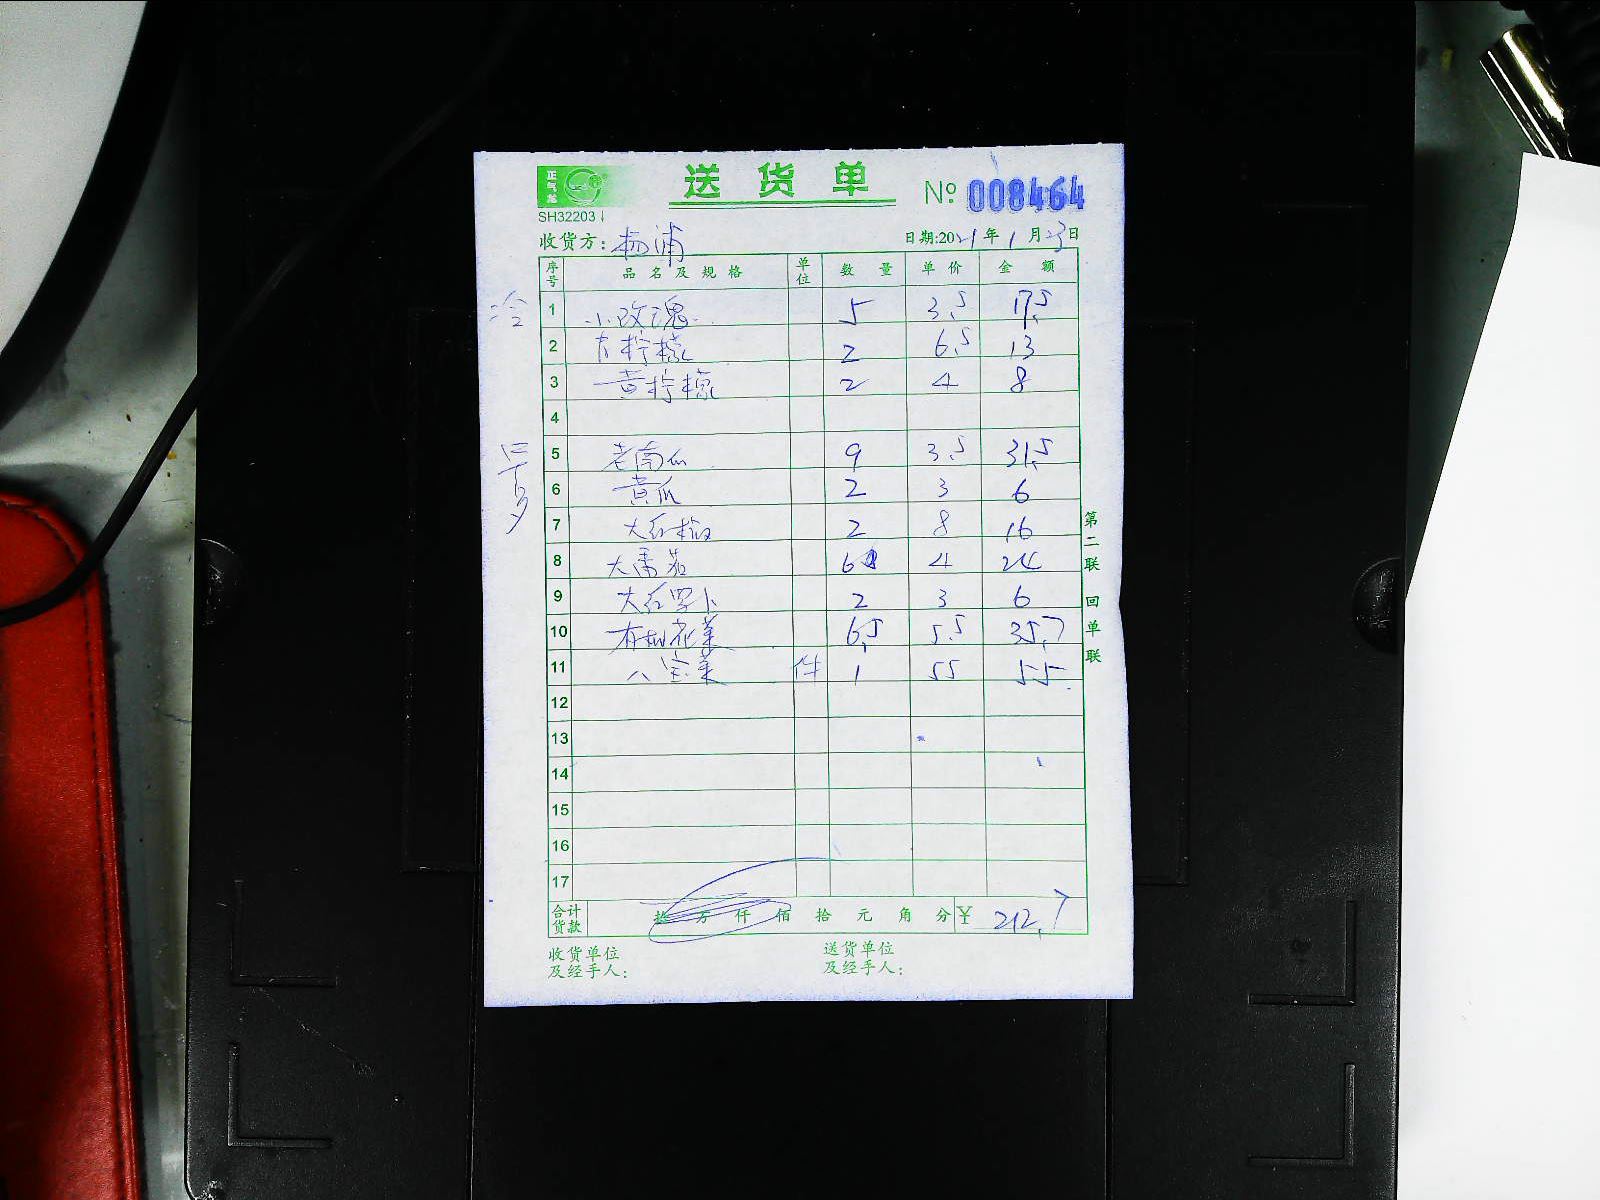 正气龙
送货单
№ 008464
SH32203
收货方: 杨浦
日期:2021年1月23日
序号 品名及规格 单位 数量 单价 金额
冷
1 小玫瑰 5 3.5 17.5
2 青柠檬 2 6.5 13
3 黄柠檬 2 4 8
4
5 老南瓜 9 3.5 31.5
6 黄瓜 2 3 6
7 大红椒 2 8 16
8 大番茄 6 4 24
9 大红罗卜 2 3 6
10 有机花菜 6.5 5.5 35.7
11 八宝菜 件 1 55 55
12
13
14
15
16
17
合计货款 拾 万 仟 佰 拾 元 角 分 ¥ 212.7
收货单位及经手人:
送货单位及经手人:
第二联 回单联